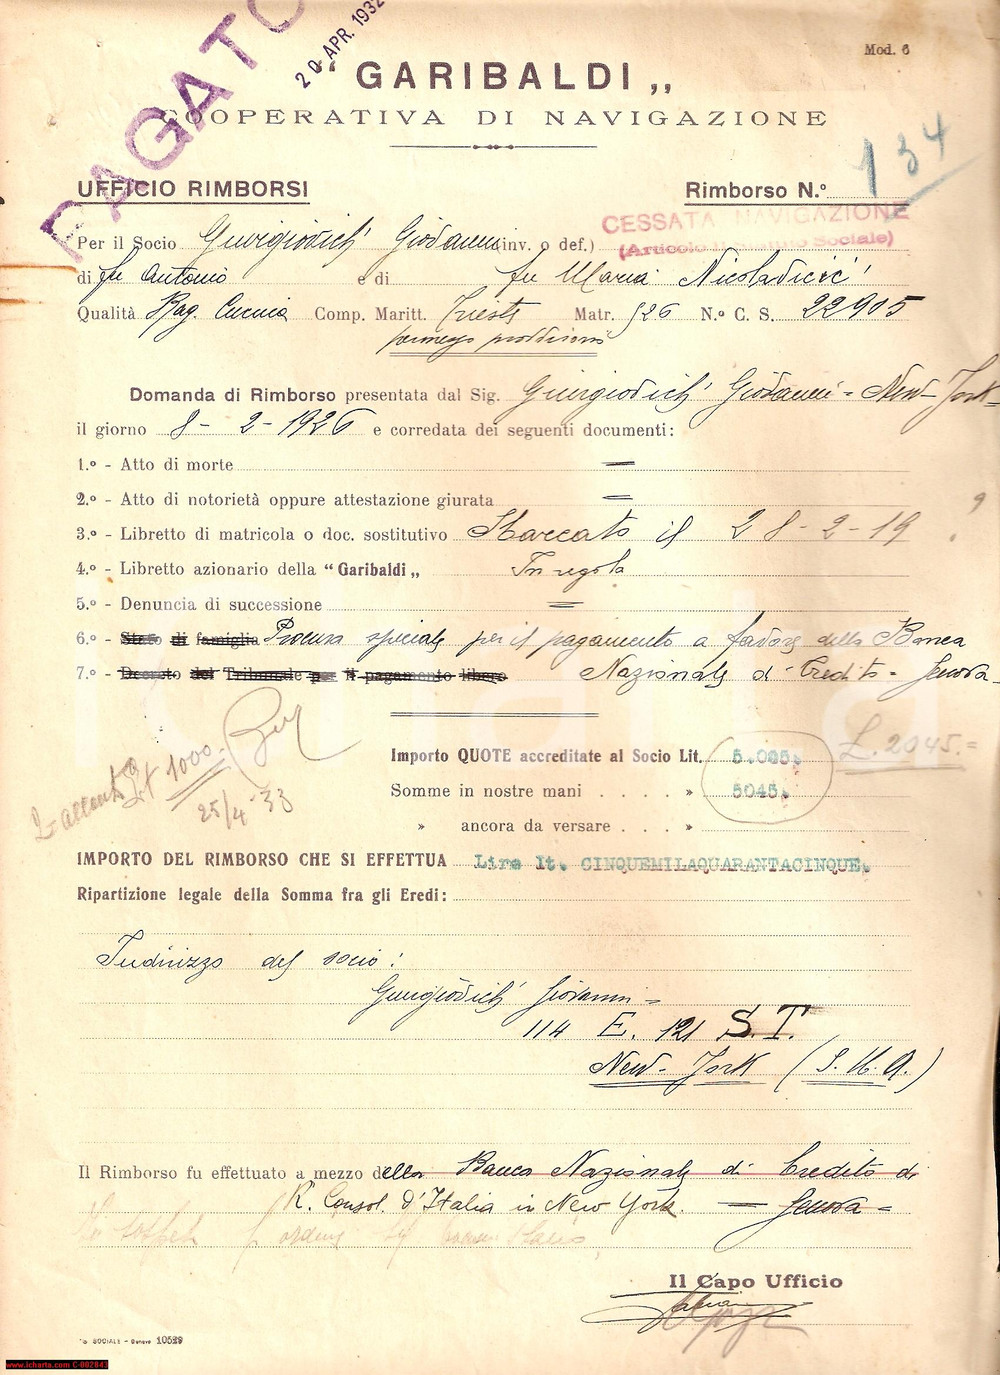 PAGATO
20 APR. 1932
Mod. 6
" GARIBALDI "
COOPERATIVA DI NAVIGAZIONE
UFFICIO RIMBORSI
Rimborso N.º 134
CESSATA NAVIGAZIONE
Per il Socio Giurgiovich' Giovanni (inv. o def.)
(Articolo Sociale)
di fu Antonio e di fu Maria Nicoladicić'
Qualità Rag. Cucina Comp. Maritt. Trieste Matr. 526 N.º C. S. 22905
Domanda di Rimborso presentata dal Sig. Giurgiovich' Giovanni = New-York
il giorno 8-2-1926 e corredata dei seguenti documenti:
1.º - Atto di morte =
2.º - Atto di notorietà oppure attestazione giurata =
3.º - Libretto di matricola o doc. sostitutivo Sbarcato il 28-2-19
4.º - Libretto azionario della "Garibaldi" In regola
5.º - Denuncia di successione =
6.º - Stato di famiglia Procura speciale per il pagamento a favore della Banca
7.º - Decreto del Tribunale per il pagamento libero Nazionale di Credito - Genova -
Importo QUOTE accreditate al Socio Lit. 5.005. L. 2045.=
Somme in nostre mani . . . . . » 5045.
» ancora da versare . . . »
Lit 1000
25/4-33
IMPORTO DEL RIMBORSO CHE SI EFFETTUA Lire It. CINQUEMILAQUARANTACINQUE.
Ripartizione legale della Somma fra gli Eredi:
Indirizzo del socio:
Giurgiovich' Giovanni =
114 E. 121 S.T.
New-York (S.U.A.)
Il Rimborso fu effettuato a mezzo della Banca Nazionale di Credito di
R. Consol. d'Italia in New York. — Genova =
Il Capo Ufficio
SOCIALE - Genova 10529
www.icharta.com C-002843